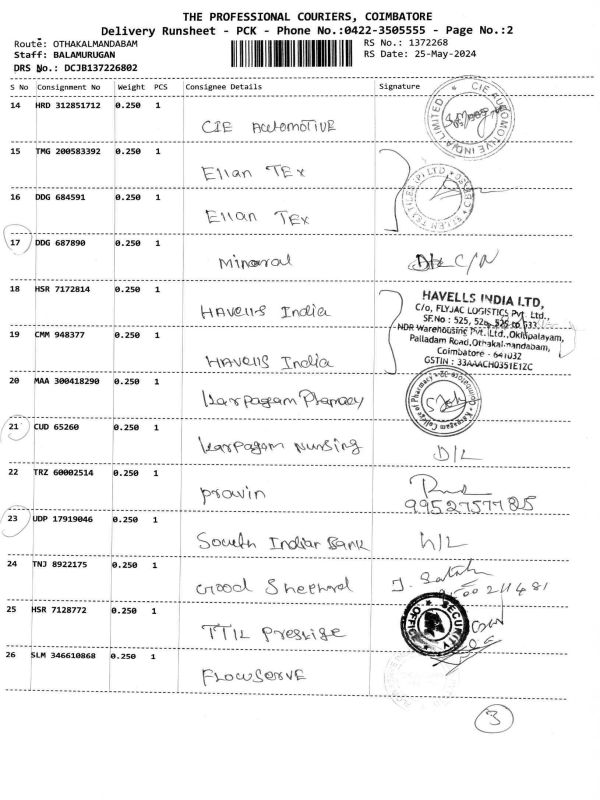 THE PROFESSIONAL COURIERS, COIMBATORE
Delivery Runsheet - PCK - Phone No.:0422-3505555 - Page No.:2
Route: OTHAKALMANDABAM RS No.: 1372268
Staff: BALAMURUGAN RS Date: 25-May-2024
DRS No.: DCJB137226802
S No Consignment No Weight PCS Consignee Details Signature
14 HRD 312851712 0.250 1
CIE AUTOMOTIVE INDIA LIMITED
CIE Automotive
15 TMG 200583392 0.250 1
Ellan TEx
16 DDG 684591 0.250 1
Ellan TEx
17 DDG 687890 0.250 1
Mineral D/L C/N
18 HSR 7172814 0.250 1
HAVELLS INDIA LTD,
C/o, FLYJAC LOGISTICS Pvt. Ltd.,
HAVells India
SF.No : 525, 529, 525 to 533
NDR Warehousing Pvt. Ltd., Okilipalayam,
19 CMM 948377 0.250 1
Palladam Road, Othakalmandabam,
Coimbatore - 641032
HAVells India
GSTIN : 33AAACH0351E1ZC
20 MAA 300418290 0.250 1
Karpagam College of Pharmacy
Karpagam Pharmacy
21 CUD 65260 0.250 1
Karpagam nursing D/L
22 TRZ 60002514 0.250 1
pravin
23 UDP 17919046 0.250 1
South Indian Bank
24 TNJ 8922175 0.250 1
Good Shepherd
25 HSR 7128772 0.250 1
SECURITY OFFICE
TTK Prestige
26 SLM 346610868 0.250 1
FLOWSERVE
3